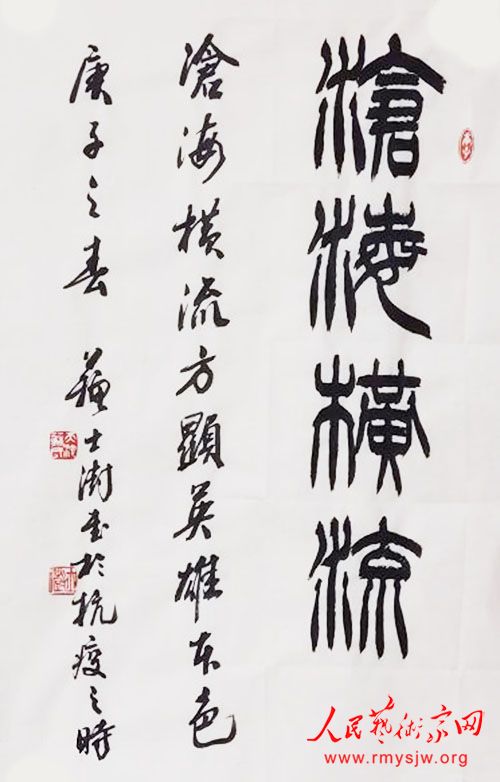 滄海橫流
滄海橫流方顯英雄本色
庚子之春 蘇士澍書於抗疫之時
人民藝術家网
www.rmysjw.org